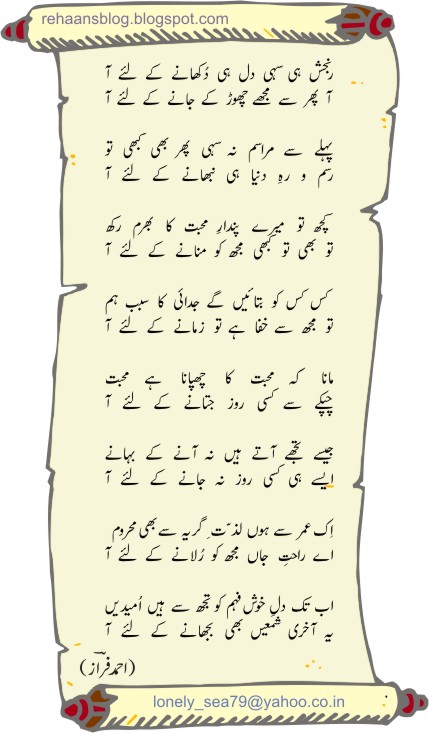 rehaansblog.blogspot.com
رنجش ہی سہی دل ہی دُکھانے کے لئے آ
آ پھر سے مجھے چھوڑ کے جانے کے لئے آ
پہلے سے مراسم نہ سہی پھر بھی کبھی تو
رسم و رہِ دنیا ہی نبھانے کے لئے آ
کچھ تو میرے پندارِ محبت کا بھرم رکھ
تو بھی تو کبھی مجھ کو منانے کے لئے آ
کس کس کو بتائیں گے جدائی کا سبب ہم
تو مجھ سے خفا ہے تو زمانے کے لئے آ
مانا کہ محبت کا چھپانا ہے محبت
چپکے سے کسی روز جتانے کے لئے آ
جیسے تجھے آتے ہیں نہ آنے کے بہانے
ایسے ہی کسی روز نہ جانے کے لئے آ
اِک عمر سے ہوں لذّتِ گریہ سے بھی محروم
اے راحتِ جاں مجھ کو رُلانے کے لئے آ
اب تک دلِ خوش فہم کو تجھ سے ہیں اُمیدیں
یہ آخری شمعیں بھی بجھانے کے لئے آ
(احمد فراؔز)
lonely_sea79@yahoo.co.in